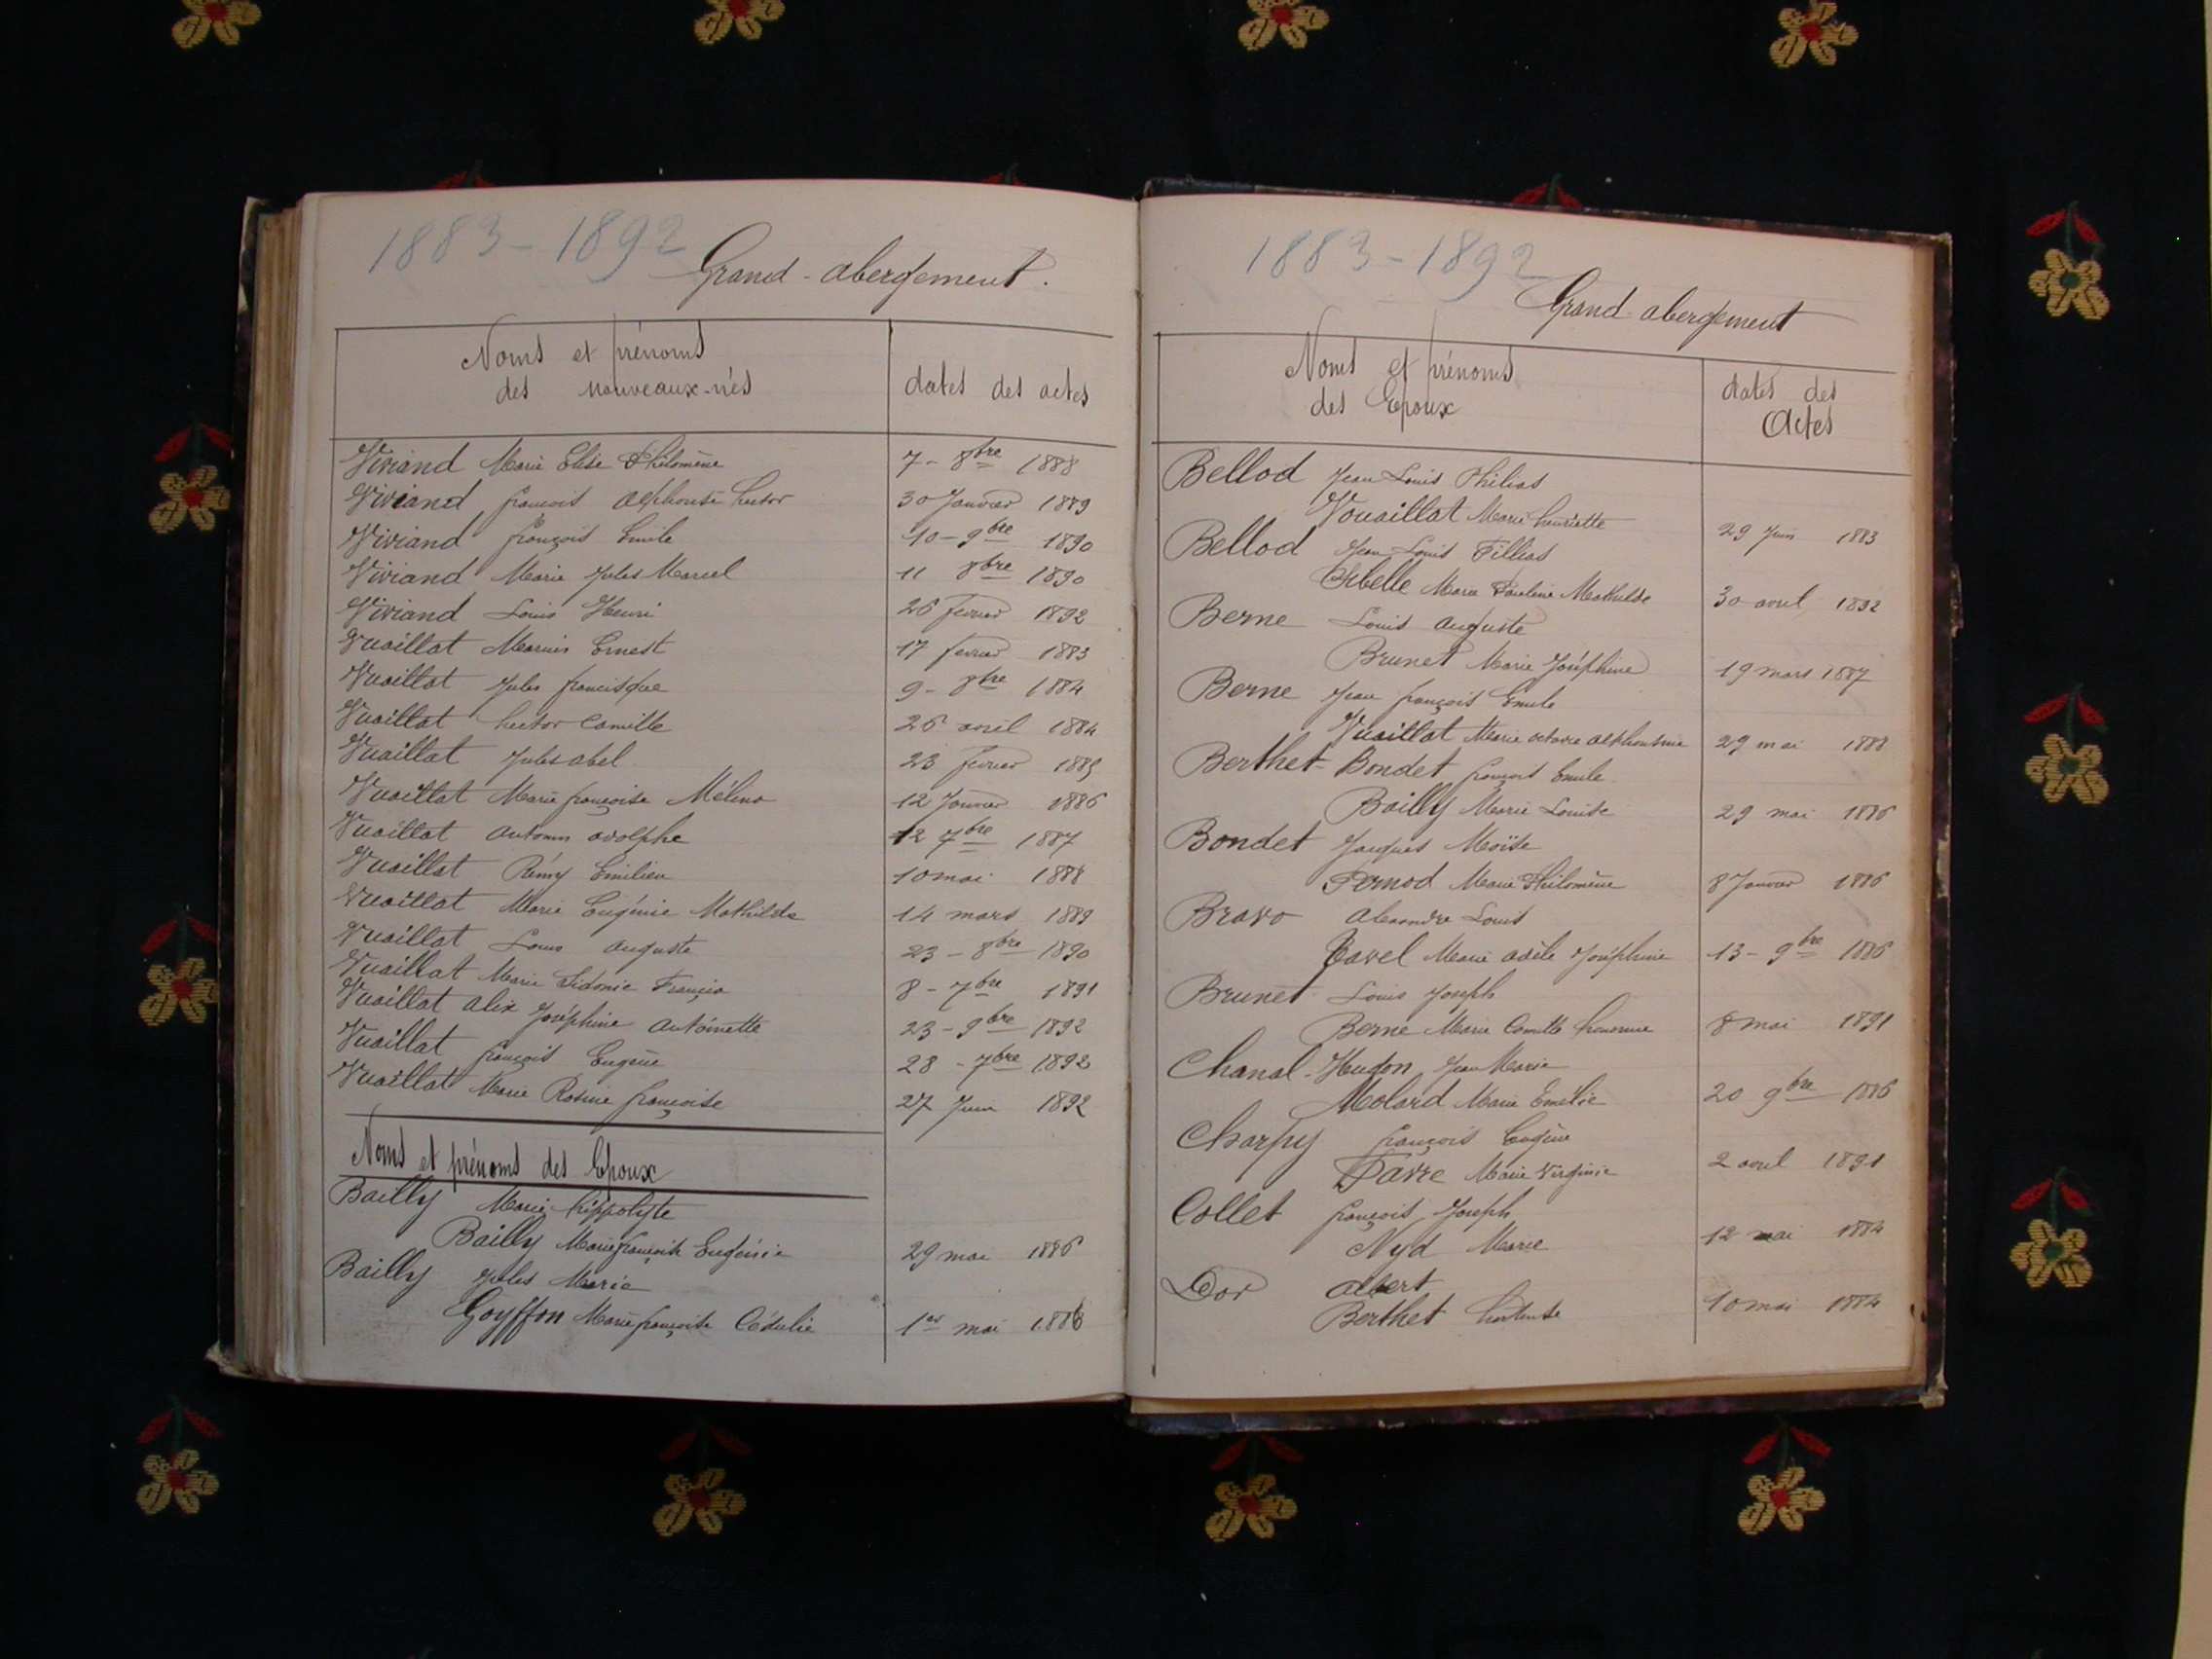 1883-1892
Grand-abergement.
Noms et prénoms
des nouveaux-nés
dates des actes
Viviand Marie Elise Philomène 7-8bre 1888
Viviand françois alphonse hector 30 Janvier 1889
Viviand françois Emile 10-9bre 1890
Viviand Marie Jules Marcel 11 8bre 1890
Viviand Louis Henri 26 fevrier 1892
Vuaillat Marius Ernest 17 fevrier 1883
Vuaillat Jules francisque 9-8bre 1884
Vuaillat hector Camille 26 avril 1884
Vuaillat Jules abel 23 fevrier 1885
Vuaillat Marie françoise Mélina 12 Janvier 1886
Vuaillat adolphe 12 7bre 1887
Vuaillat Rémy Emilien 10 mai 1888
Vuaillat Marie Eugénie Mathilde 14 mars 1889
Vuaillat Louis auguste 23-8bre 1890
Vuaillat Marie Sidonie 8-7bre 1891
Vuaillat alix Joséphine antoinette 23-9bre 1892
Vuaillat françois Eugène 28-7bre 1892
Vuaillat Marie Rosine françoise 27 Juin 1892
Noms et prénoms des Epoux
Bailly Marie hippolyte
Bailly Marie françoise Eugénie 29 mai 1886
Bailly Jules Marie
Goyffon Marie françoise Cédulie 1er mai 1886
1883-1892
Grand abergement
Noms et prénoms
des Epoux
dates des
Actes
Bellod Jean Louis Philias
Vouaillat Marie henriette 29 Juin 1883
Bellod Jean Louis Fillias
Marie Pauline Mathilde 30 avril 1892
Berne Louis auguste
Brunet Marie Joséphine 19 mars 1887
Berne Jean françois Emile
Vuaillat Marie octavie alphonsine 29 mai 1888
Berthet-Bondet françois Emile
Bailly Marie Louise 29 mai 1886
Bondet Jacques Moïse
Pernod Marie Philomène 8 Janvier 1886
Bravo alexandre Louis
Favel Marie adèle Joséphine 13-9bre 1886
Brunet Louis Joseph
Berne Marie Camille 8 mai 1891
Chanal-Hugon Jean Marie
Molard Marie Emélie 20 9bre 1886
Charpy françois Eugène
Favre Marie Virginie 2 avril 1891
Collet françois Joseph
Nyd Marie 12 mai 1884
Dor albert
Berthet hortense 10 mai 1884